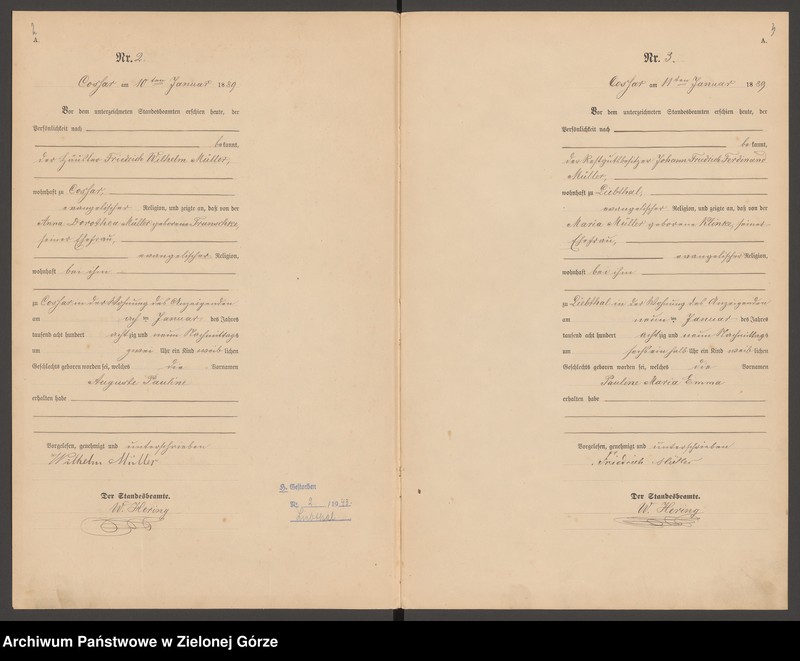 2
A.
Nr. 2.
Cossar am 10ten Januar 1889
Vor dem unterzeichneten Standesbeamten erschien heute, der
Persönlichkeit nach
bekannt,
der Häusler Friedrich Wilhelm Müller,
wohnhaft zu Cossar,
evangelischer Religion, und zeigte an, daß von der
Anna Dorothea Müller geborene
seiner Ehefrau,
evangelischer Religion,
wohnhaft bei ihm
zu Cossar in der Wohnung des Anzeigenden
am Januar des Jahres
tausend acht hundert achtzig und neun Nachmittags
um zwei Uhr ein Kind weiblichen
Geschlechts geboren worden sei, welches die Vornamen
Auguste Pauline
erhalten habe
Vorgelesen, genehmigt und unterschrieben
Wilhelm Müller
Der Standesbeamte.
W. Hering
A. Gestorben
No 2
3
A.
Nr. 3.
Cossar am 11ten Januar 1889
Vor dem unterzeichneten Standesbeamten erschien heute, der
Persönlichkeit nach
bekannt,
der Restgutbesitzer Johann Friedrich Ferdinand
Müller,
wohnhaft zu Liebthal,
evangelischer Religion, und zeigte an, daß von der
Maria Müller geborene Klinke, seiner
Ehefrau,
evangelischer Religion,
wohnhaft bei ihm
zu Liebthal in der Wohnung des Anzeigenden
am neunten Januar des Jahres
tausend acht hundert achtzig und neun Nachmittags
um sechseinhalb Uhr ein Kind weiblichen
Geschlechts geboren worden sei, welches die Vornamen
Pauline Maria Emma
erhalten habe
Vorgelesen, genehmigt und unterschrieben
Friedrich Müller
Der Standesbeamte.
W. Hering
Archiwum Państwowe w Zielonej Górze